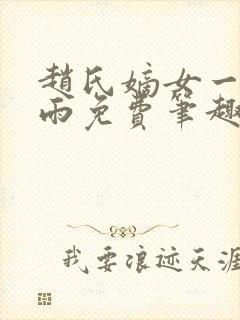 趙氏嫡女一
雨免費筆趣
我要浪迹天涯